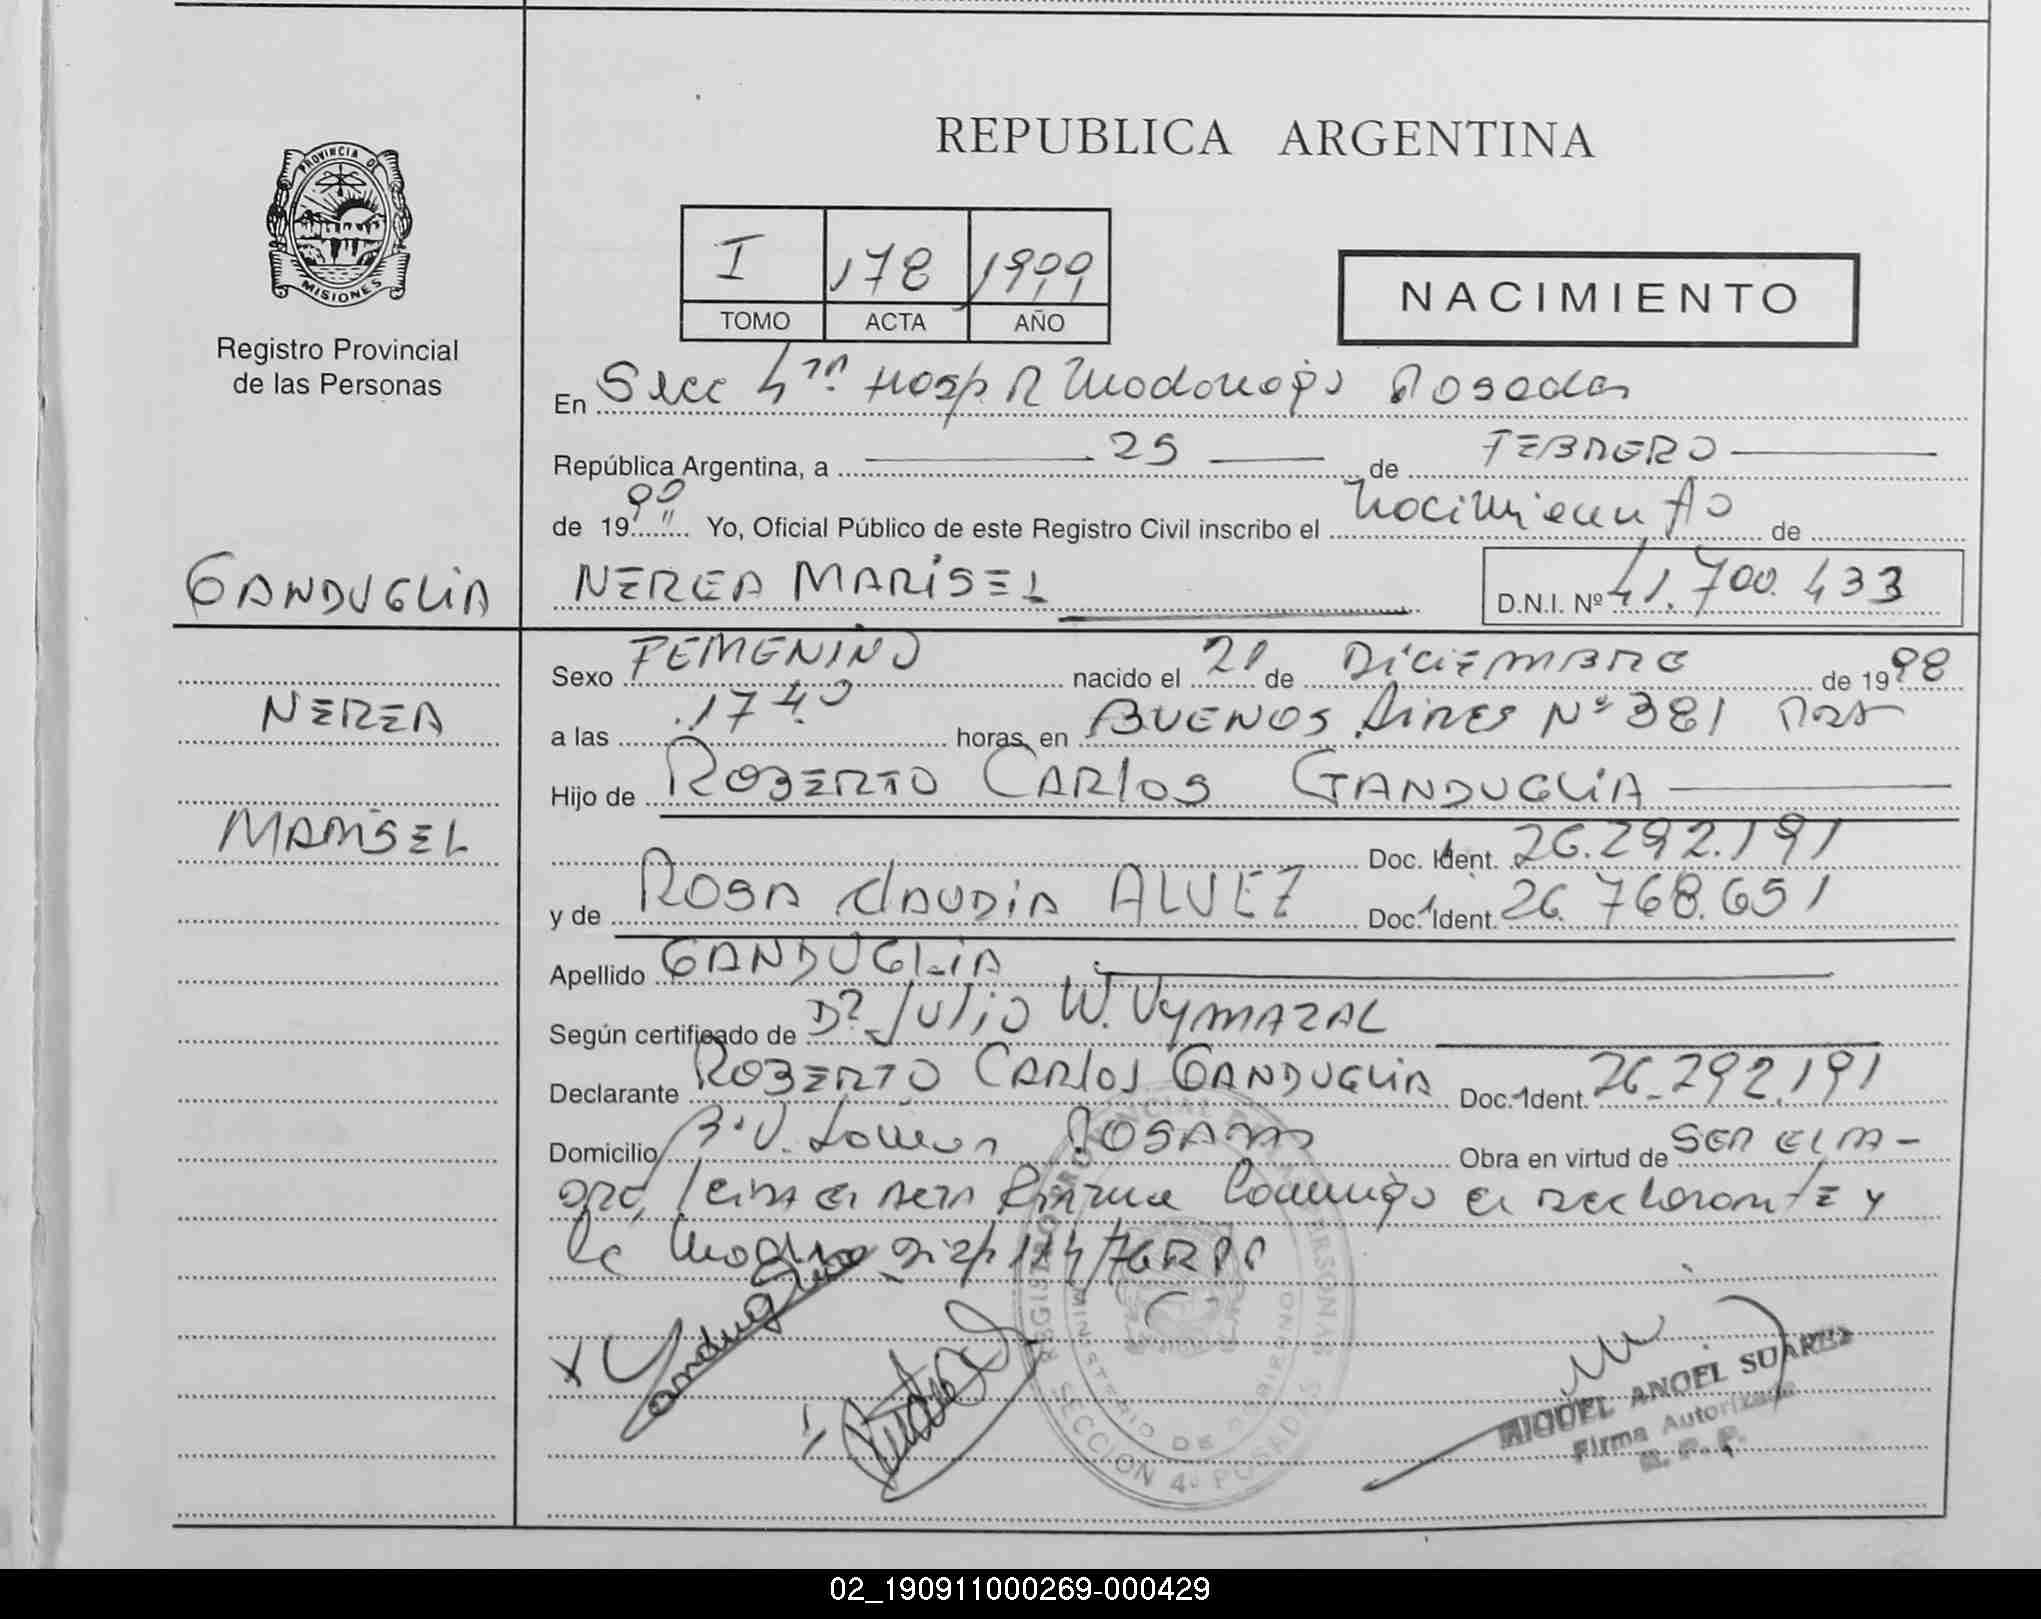 REPUBLICA ARGENTINA
PROVINCIA DE
MISIONES
Registro Provincial
de las Personas
I 178 1999
TOMO ACTA AÑO
NACIMIENTO
En Secc 4ta Hosp R Madariaga Posadas
República Argentina, a 25 de FEBRERO
de 1999 Yo, Oficial Público de este Registro Civil inscribo el Nacimiento de
GANDUGLIA
NEREA MARISEL D.N.I. Nº 41.700.433
Sexo FEMENINO nacido el 21 de DICIEMBRE de 1998
NEREA
a las 17 40 horas, en BUENOS AIRES Nº 381
Hijo de ROBERTO CARLOS GANDUGLIA
MARISEL
Doc. Ident. 26.292.191
y de ROSA CLAUDIA ALVEZ Doc. Ident. 26.768.651
Apellido GANDUGLIA
Según certificado de Dr. Julio W. VYMAZAL
Declarante ROBERTO CARLOS GANDUGLIA Doc. Ident. 26.292.191
Domicilio POSADAS Obra en virtud de SER EL PA-
DRE, leida el ACTA FIRMA conmigo el declarante y
la madre
Ganduglia
REGISTRO PROVINCIAL DE LAS PERSONAS
MINISTERIO DE GOBIERNO
SECCION 4a POSADAS
MIGUEL ANGEL SUAREZ
Firma Autorizada
R. P. P.
02_190911000269-000429